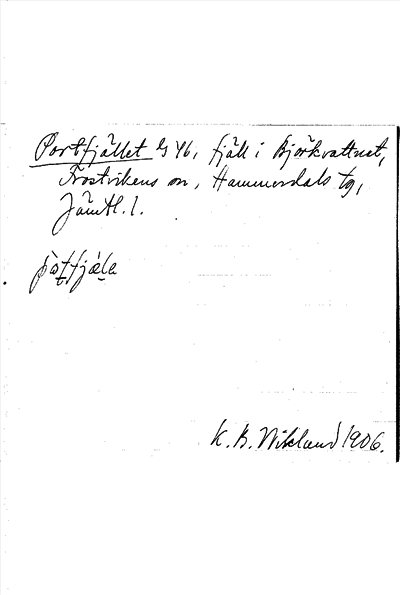 Portfjället G 46, fjäll i Björkvattnet,
Frostvikens sn, Hammerdals tg,
Jämtl. l.
pɷ̀tfjǽla
K. B. Wiklund 1906.